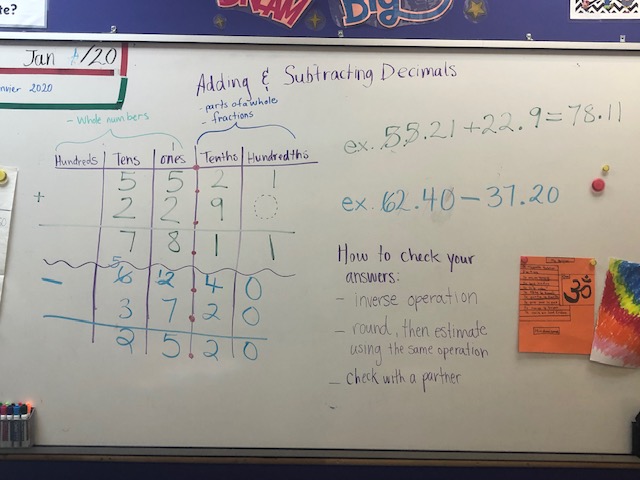 te?
DREAM
Big
Jan 6/20
nvier 2020
Adding & Subtracting Decimals
- Whole numbers
- parts of a whole
- fractions
Hundreds Tens ones Tenths Hundredths
1
5 5 . 2 1
+ 2 2 . 9 0
7 8 . 1 1
5 12
- 6 2 . 4 0
3 7 . 2 0
2 5 . 2 0
ex. 55.21 + 22.9 = 78.11
ex. 62.40 - 37.20
How to check your
answers:
- inverse operation
- round, then estimate
using the same operation
- check with a partner
-
ॐ